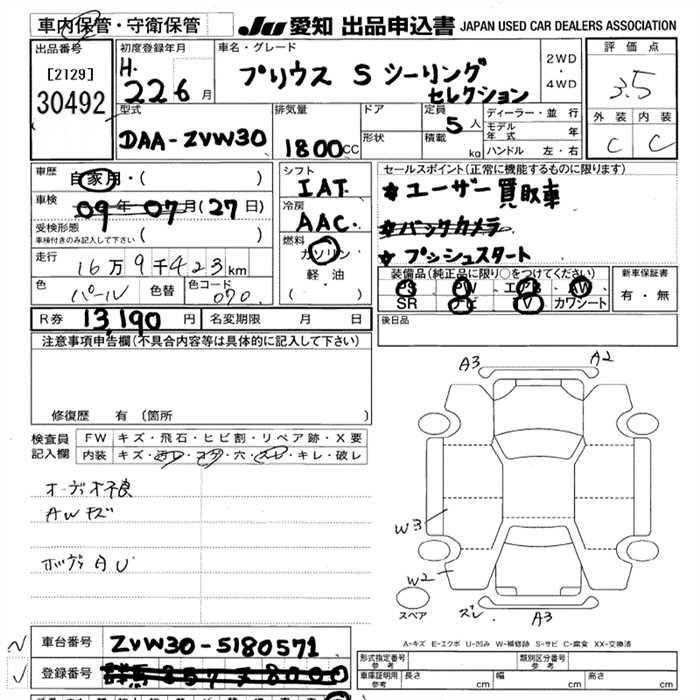 車内保管・守衛保管
JU 愛知 出品申込書 JAPAN USED CAR DEALERS ASSOCIATION
出品番号
[2129]
30492
初度登録年月
H. 22 6 月
車名・グレード
プリウス S シーリング
セレクション
2WD
・
4WD
評価点
3.5
外装 内装
C C
型式
DAA-ZVW30
排気量
1800 CC
ドア
形状
定員
5人
積載
kg
ディーラー・並行
モデル年式 年
ハンドル 左・右
車歴
自家用・( )
車検
09年07月(27日)
受検形態
車検付きのみ記入して下さい ( )
走行
16万9千423km
色
パール
色替
色コード
070
シフト
IAT
冷房
AAC
燃料
ガソリン
軽油
( )
セールスポイント(正常に機能するものに限ります)
* ユーザー買取車
* バックカメラ
* プッシュスタート
装備品(純正品に限り○をつけてください)
PS PW エアB AW
SR ナビ TV カワシート
新車保証書
有・無
R券 13,190 円 名変期限 月 日
後日品
注意事項申告欄(不具合内容等は具体的に記入して下さい)
修復歴 有(箇所
検査員
記入欄
FW キズ・飛石・ヒビ割・リペア跡・X要
内装 キズ・汚レ・コゲ・穴・スレ・キレ・破レ
オーディオ不良
AWキズ
A3 A2
W3
W2
スペア
ズレ
A3
A-キズ E-エクボ U-凹み W-補修跡 S-サビ C-腐食 XX-交換済
車台番号 ZVW30-5180571
登録番号 群馬 357 8000
形式指定番号
参考
類別区分番号
参考
車庫証明用
参考
長さ cm 幅 cm 高さ cm